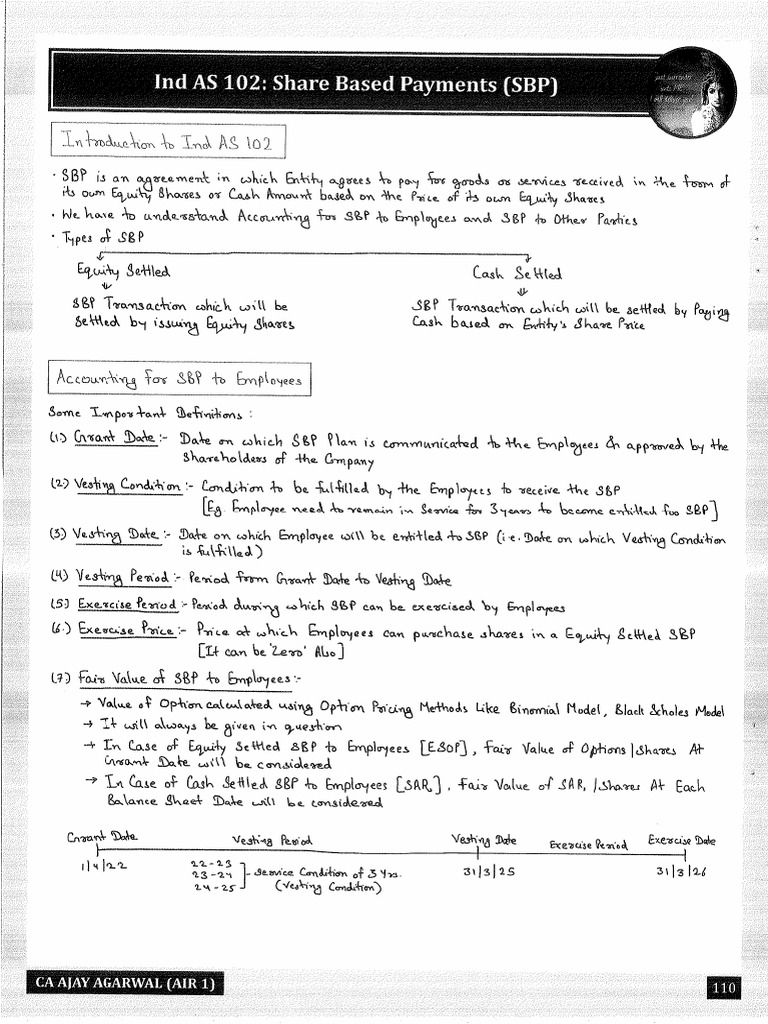 Ind AS 102: Share Based Payments (SBP)
Introduction to Ind AS 102
· SBP is an agreement in which Entity agrees to pay for goods or services received in the form of
its own Equity Shares or Cash Amount based on the Price of its own Equity Shares
· We have to understand Accounting for SBP to Employees and SBP to Other Parties
· Types of SBP
Equity Settled
Cash Settled
SBP Transaction which will be
settled by issuing Equity Shares
SBP Transaction which will be settled by Paying
Cash based on Entity's Share Price
Accounting for SBP to Employees
Some Important Definitions :
(1) Grant Date :- Date on which SBP Plan is communicated to the Employees & approved by the
Shareholders of the Company
(2) Vesting Condition :- Condition to be fulfilled by the Employees to receive the SBP
[Eg. Employee need to remain in Service for 3 years to become entitled for SBP]
(3) Vesting Date :- Date on which Employee will be entitled to SBP (i.e. Date on which Vesting Condition
is fulfilled)
(4) Vesting Period :- Period from Grant Date to Vesting Date
(5) Exercise Period :- Period during which SBP can be exercised by Employees
(6.) Exercise Price :- Price at which Employees can purchase shares in a Equity Settled SBP
[It can be 'Zero' Also]
(7) Fair Value of SBP to Employees :-
→ Value of Option calculated using Option Pricing Methods Like Binomial Model, Black Scholes Model
→ It will always be given in question
→ In Case of Equity Settled SBP to Employees [ESOP], Fair Value of Options/Shares At
Grant Date will be considered
→ In Case of Cash Settled SBP to Employees [SAR], Fair Value of SAR/Shares At Each
Balance Sheet Date will be considered
Grant Date Vesting Period Vesting Date Exercise Period Exercise Date
1/4/22 31/3/25 31/3/26
22-23
23-24 - Service Condition of 3 Yrs.
24-25 (Vesting Condition)
CA AJAY AGARWAL (AIR 1)
110